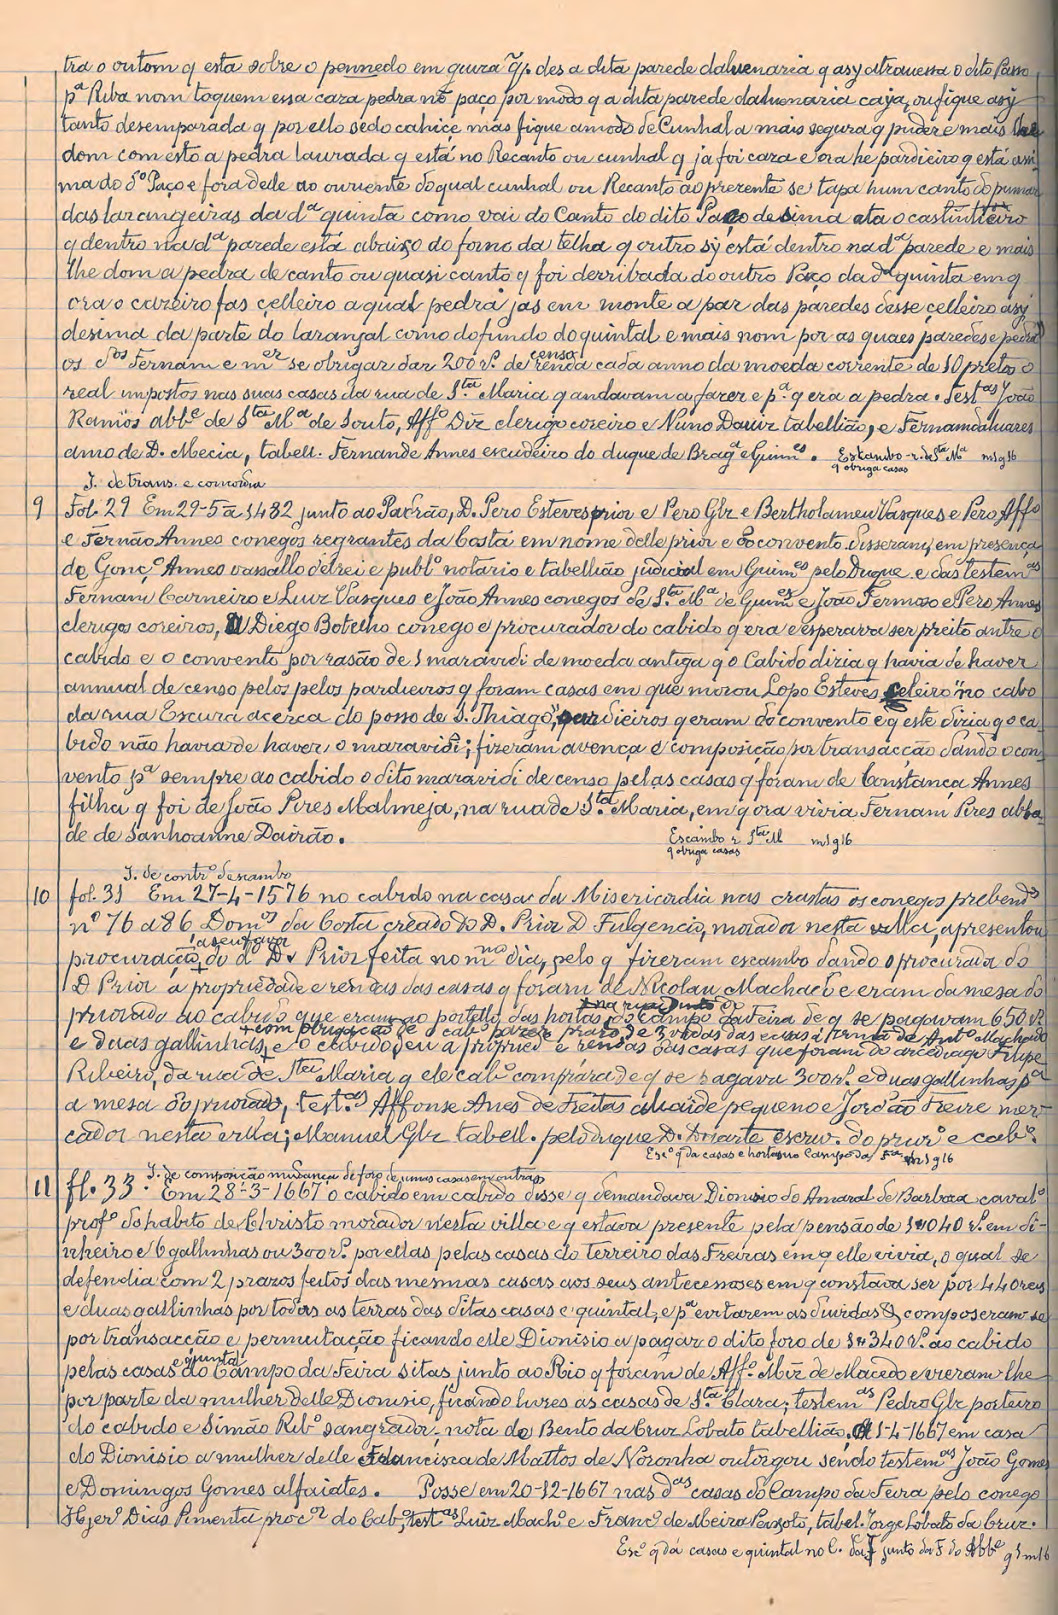 tra o outom q está sobre o pennedo em quiza q̃ p. des a dita parede dalvenaria q asy atravessa o dito Passo
pª Riba nom toquem essa caza pedra nẽ paço por modo q a dita parede dalvenaria caya, ou fique asy
tanto desemparada q por ello sedo cahice mas fique a modo de Cunhal a mais segura q puder e mais lhe
dom com esto a pedra laurada q está no Recanto ou cunhal q ja foi caza e ora he pardieiro q está assi
ma do dº Paço e fora delle ao ouriente do qual cunhal ou Recanto ao prezente se tapa hum canto do pumar
das larangeiras da dª quinta como vai do Canto do dito Paço de sima ata o castintieiro
q dentro na dª parede está abaixo do forno da telha q outro sy está dentro na dª parede e mais
lhe dom a pedra de canto ou quasi canto q foi derribada do outro Paço da dª quinta em q
ora o cazeiro fas çelleiro a qual pedra jas em monte a par das paredes desse çelleiro asy
desima da parte do laranjal como do fundo do quintal e mais nom por as quaes paredes e pedra
os dos Fernam e mer se obrigar dar 200 rs. de censo renda cada anno da moeda corrente de 10 pretos o
real impostos nas suas casas da rua de Sta Maria q andavam a fazer e pª q era a pedra. Testas João
Ramos abbe de Sta Mª de Souto, Affº Diz clerigo coreiro e Nuno Daviz tabellião, e Fernamdalvares
amo de D. Mecia, tabell. Fernande Annes escudeiro do duque de Bragª e Guimes. Escambo - r. de Sta Mª m1 g16
q obriga casas
I. de trans. e concordia
9 Fol. 29 Em 29-5ª-1432 junto ao Padrão, D. Pero Esteves prior e Pero Glz e Bertholameu Vasques e Pero Affº
e Fernão Annes conegos regrantes da Costa em nome delle prior e do convento disseram, em presença
de Gonçº Annes vassallo d'elrei e publº notario e tabellião judicial em Guimes pelo Duque e das testemas
Fernam Carneiro e Luiz Vasques e João Annes conegos de Sta Mª de Guimes e João Fermoso e Pero Annes
clerigos coreiros, a Diego Botelho conego e procurador do cabido q era e esperava ser preito antre o
cabido e o convento por rasão de 1 maravidi de moeda antiga q o Cabido dizia q havia de haver
annual de censo pelos pelos pardieiros q foram casas em que morou Lopo Esteves, celeiro "no cabo
da rua Escura acerca do posso de S. Thiago", pardieiros q eram do convento e q este dizia q o ca-
bido não havia de haver o maravidi; fizeram avença e composição por transacção dando o con-
vento pª sempre ao cabido o dito maravidi de censo pelas casas q foram de Constança Annes
filha q foi de João Pires Malmeja, na rua de Sta Maria, em q ora vivia Fernam Pires abba-
de de Sanhoanne Dairão. Escambo r. Sta M m1 g16
q obriga casas
I. de contrº descambo
10 fol. 31 Em 27-4-1576 no cabido na casa da Misericordia nas crastas os conegos prebendos
nº 76 a 86 Domos da Costa creado do D. Prior D Fulgencio, morador nesta villa, apresentou
a seu favor
procuração do dº D. Prior feita no mmo dia, pelo q fizeram escambo dando o procurador do
D Prior a propriedade e rendas das casas q foram de Nicolau Machado e eram da mesa do
na rua junto do
priorado ao cabido que eram ao portello das hortas do Campo da Feira de q se pagavam 650 rs
+ com obrigação de o cabº fazer prazo de 3 vidas das casas á Irmã de Antº Machado
e duas gallinhas, + e o cabido deu a propried e rendas das casas que foram do arcediago Filipe
Ribeiro, da rua de Sta Maria q ele cabº comprára de q se pagava 300 rs. e duas gallinhas pª
a mesa do priorado, testas Affonse Anes de Freitas alcaide pequeno e Jordão Freire mer-
cador nesta villa; Manuel Glz tabell. pelo duque D. Duarte escrev. do priorº e cabº.
Escº q dá casas e hortas no Campo da Fra m1 g16
I. de composição mudança de foro de umas casas em outras
11 fl. 33. Em 28-3-1667 o cabido em cabido disse q demandava Dionisio do Amaral de Barbosa cavalº
profº do habito de Christo morador nesta villa e q estava presente pela pensão de 1$040 rs. em di-
nheiro e 6 gallinhas ou 300 rs. por ellas pelas casas do terreiro das Freiras em q elle vivia, o qual se
defendia com 2 prazos feitos das mesmas casas aos seus antecessores em q constava ser por 440 reis
e duas gallinhas por todas as terras das ditas casas e quintal, e pª evitarem as duvidas, composeram-se
por transacção e permutação ficando elle Dionisio a pagar o dito foro de 1$340 rs. ao cabido
e quintal
pelas casas do Campo da Feira sitas junto ao Rio q foram de Affº. Miz de Macedo e vieram-lhe
por parte da mulher delle Dionisio, ficando livres as casas de Sta Clara; testemas Pedro Glz porteiro
do cabido e Simão Ribº sangrador; nota de Bento da Cruz Lobato tabellião. A 1-4-1667 em casa
do Dionisio a mulher delle Francisca de Mattos de Noronha outorgou sendo testemas João Gomes
e Domingos Gomes alfaiates. Posse em 20-12-1667 nas das casas do Campo da Feira pelo conego
Hjerº Dias Pimenta procor do Cabº, testas Luiz Machº e Francº de Meira Peixoto, tabel. Jorge Lobato da Cruz.
Escº q dá casas e quintal no C. da F junto da F do Abbe g1 m16